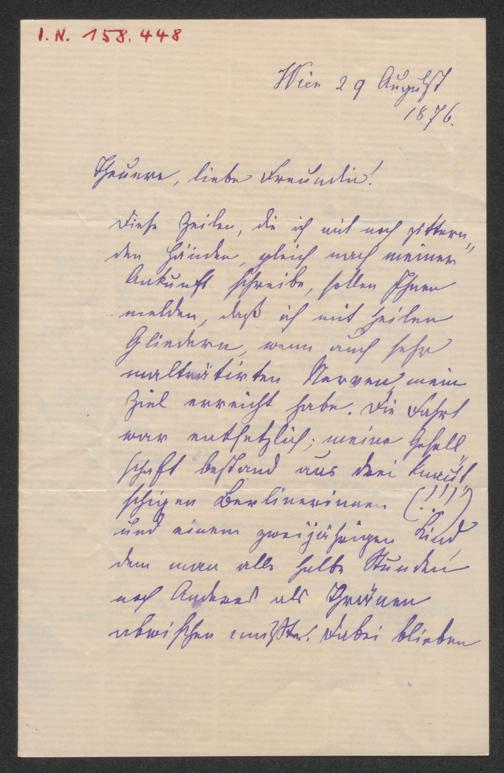 I.N. 158.448
Wien 29 August
1876.
Theuere, liebe Freundin!
Diese Zeilen, die ich mit noch zittern„
den Händen, gleich nach meiner
Ankunft schreibe, sollen Ihnen
melden, daß ich mit heilen
Gliedern, wenn auch sehr
malträtirten Nerven mein
Ziel erreicht habe. Die Fahrt
war entsetzlich; meine Gesell„
schaft bestand aus drei
schigen Berlinerinnen (!!!)
und einem zweijährigen Kind
dem man alle halbe Stunden
noch Anderes als Thränen
abwischen mußte. Dabei blieben